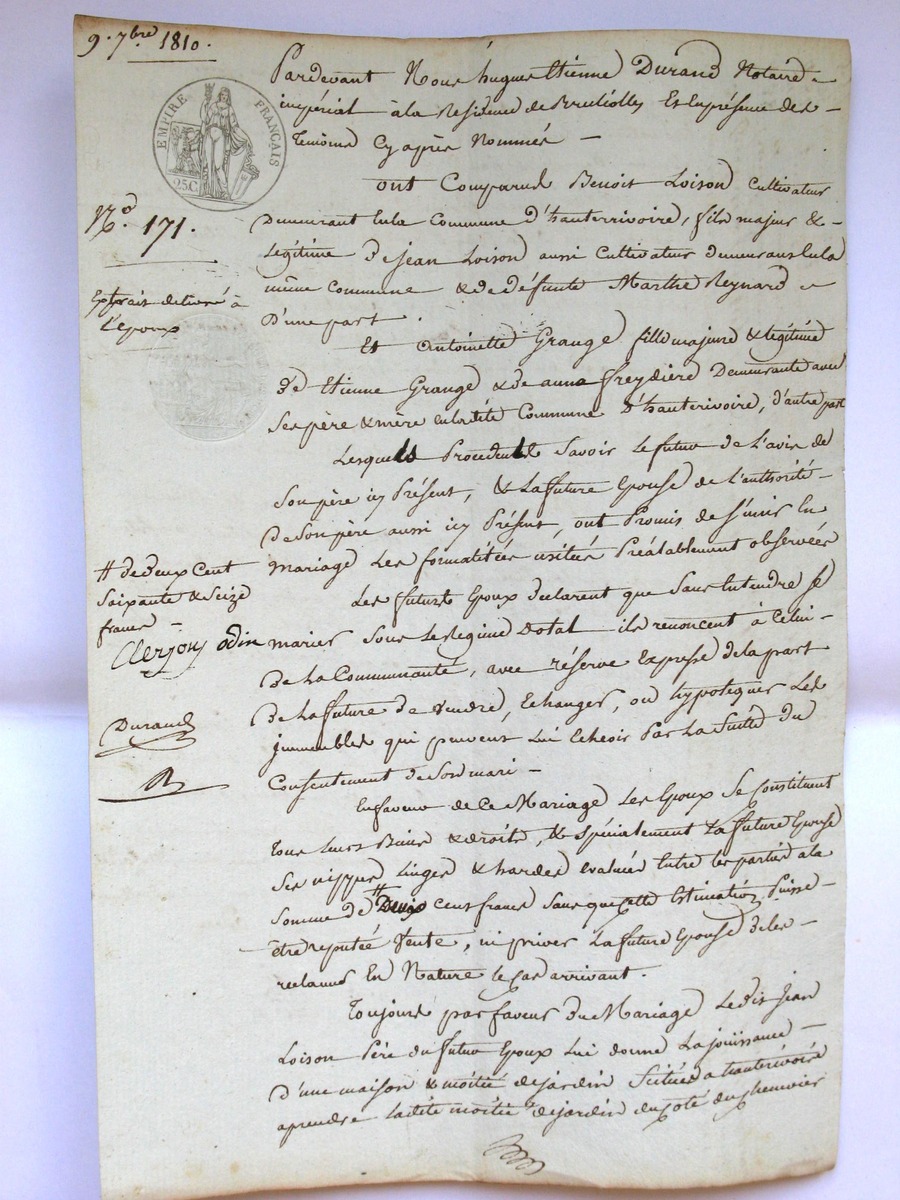 9. 7bre 1810.
EMPIRE FRANÇAIS
25C
No. 171.
Extrait délivré à
L'époux
Pardevant Nous hugues Etienne Durand Notaire
impérial à la Residence de Brulliolles Et En présence des
Temoins Cy après Nommés —
ont Comparus Benoit Loison Cultivateur
Demeurant En la Commune d'hauterrivoire, fils majeur &
Légitime De jean Loison aussi Cultivateur demeurant En la
même Commune & de défunte Marthe Reynard
D'une part.
Et Antoinette Grange fille majeure & légitime
De Etienne Grange & de anne freydière Demeurante avec
Ses père & mère en la dite Commune D'hauterivoire, d'autre part
Lesquels Procedent Savoir Le futur de L'avis de
Son père icy Présent, & La future Epouse de L'authorité
De Son père aussi icy Présent, ont Promis de S'unir En
mariage Les formalitées usitées Préalablement observées
Les futurs Epoux declarent que Sans Entendre se
marier Sous Le Regime Dotal ils renoncent à Celui
De La Communauté, avec réserve Expresse de la part
De La future de Vendre, Echanger, ou hypotequer Les
immeubles qui peuvent Lui Echeoir Par La Suite du
Consentement de Son mari —
En faveur de Ce Mariage Les Epoux Se Constituent
Tous leurs Biens & droits, & Spécialement La future Epouse
Ses nippes Linges & hardes evalués Entre les parties a la
Somme de # Deux cent francs Sans que Cette Estimation Puisse
être reputée Vente, ni priver La future Epouse de les
reclamer En Nature le Cas arrivant.
Toujours par faveur du Mariage Ledit Jean
Loison Père du futur Epoux Lui donne La joüissance
D'une maison & moitié de jardin Scituées a hauterivoire
a prendre La dite moitié de jardin du Coté du Chenevier
# de Deux Cent
Soixante & Seize
francs
Clerjon odin
Durand